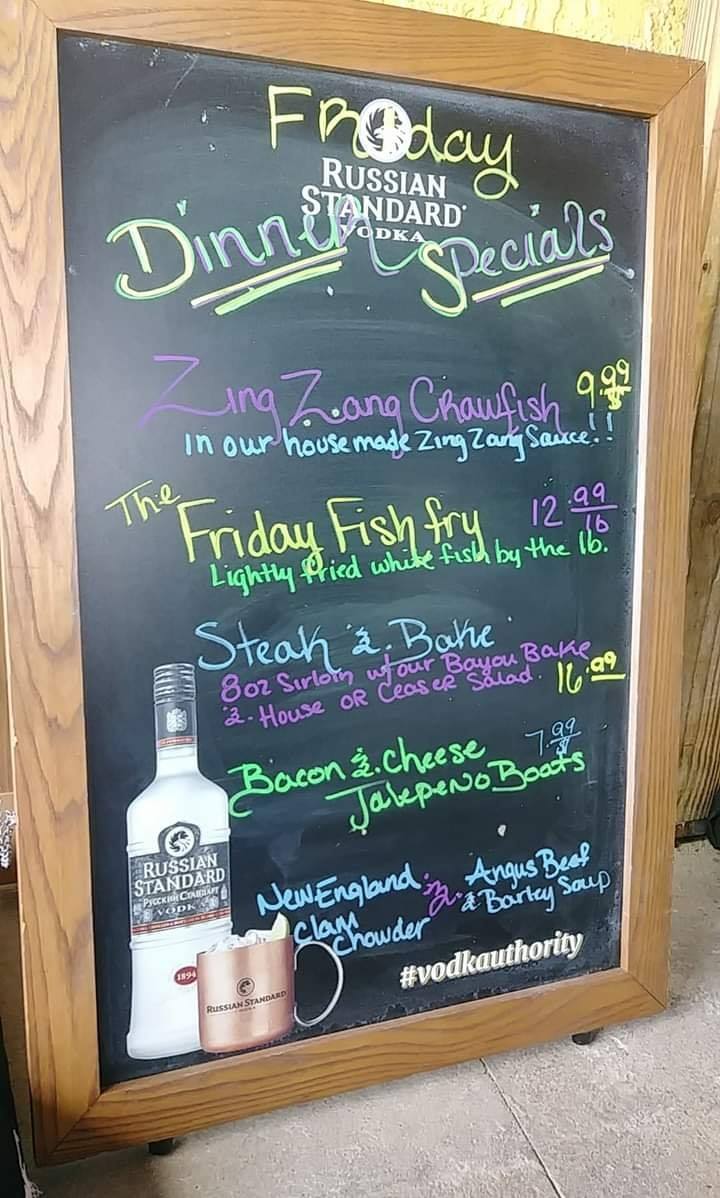 Friday
RUSSIAN
STANDARD
VODKA
Dinner Specials
Zing Zang Crawfish 9.99
in our house made Zing Zang Sauce!!
The
Friday Fish fry 12.99
lb
Lightly fried white fish by the lb.
Steak & Bake
8oz Sirloin w/our Bayou Bake
& House OR Ceaser Salad. 16.99
Bacon & cheese 7.99
Jalepeno Boats
New England & Angus Beef
Clam & Barley Soup
Chowder
#vodkauthority
RUSSIAN
STANDARD
РУССКИЙ СТАНДАРТ
VODKA
1894
RUSSIAN STANDARD
VODKA